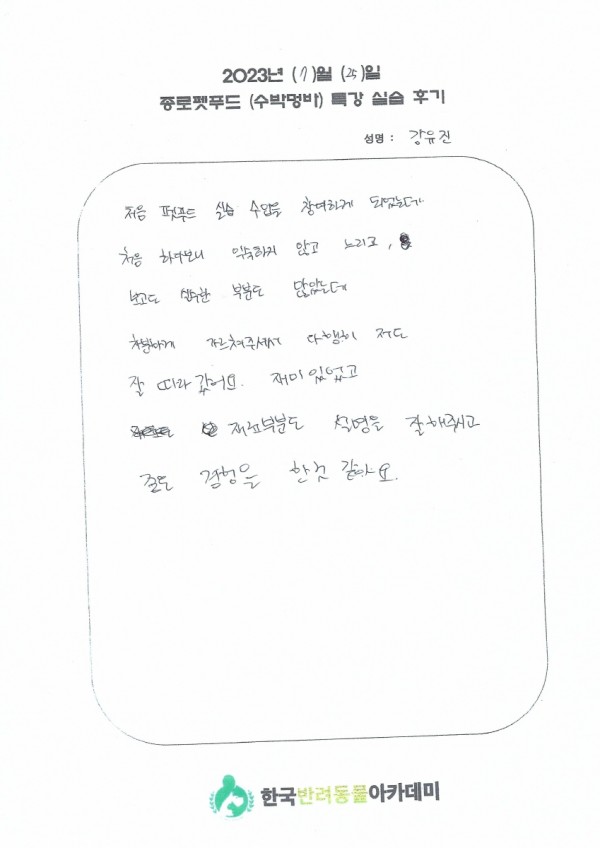 2023년 (7)월 (25)일
종로펫푸드 (수박멍바) 특강 실습 후기
성명 : 강유진
처음 펫푸드 실습 수업을 참여하게 되었는데
처음 하다보니 익숙하지 않고 느리고,
보고도 실수한 부분도 많았는데
차분하게 가르쳐주셔서 다행히 저도
잘 따라 갔어요. 재미있었고
재료부분도 설명을 잘해주시고
경험을 한것 같아요.
한국반려동물아카데미